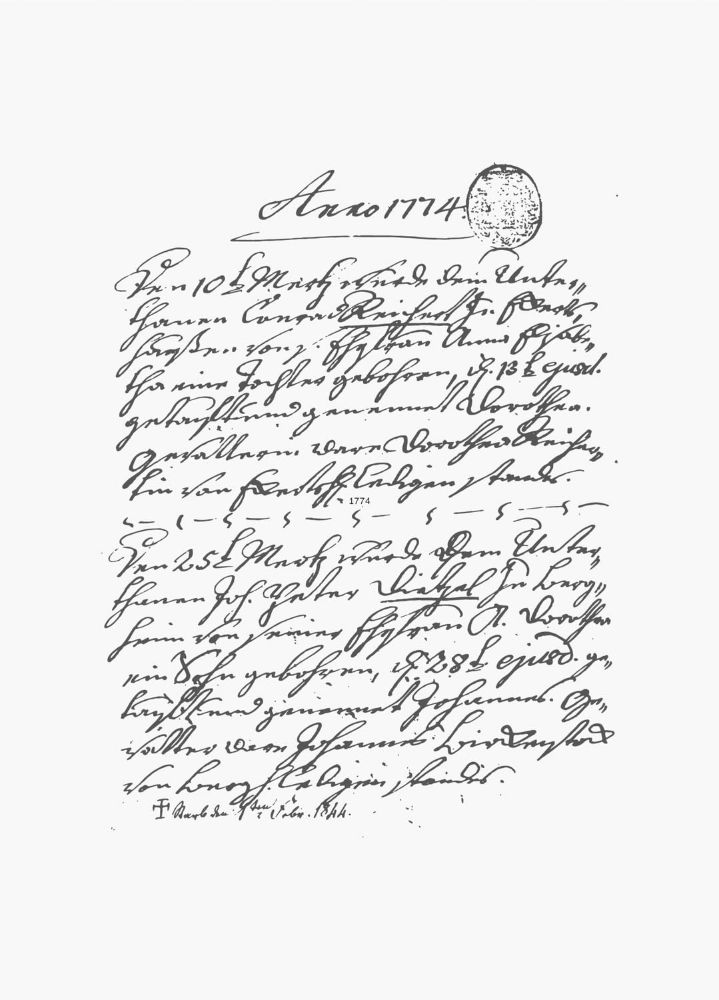 Anno 1774.
Den 10t Mertz wurde dem Unter-
thanen Conrad Reichert In Ewerts-
haußen von s. Ehefrau Anna Elisabe-
tha eine Tochter gebohren, d. 13t ejusd.
getauft und genennet Dorothea.
Gevatterin ware Dorothea Reicher-
tin von ledigen standes.
1774
Den 25t Mertz wurde dem Unter-
thanen Joh. Peter Dietzel In Berg-
heim von seiner Ehefrau A. Dorothea
ein Sohn gebohren, d. 28t ejusd. ge-
tauft und genennet Johannes. Ge-
vatter ware Johannes Birckenstock
von Bergh. ledigen standes.
Starb den Febr. 1844.